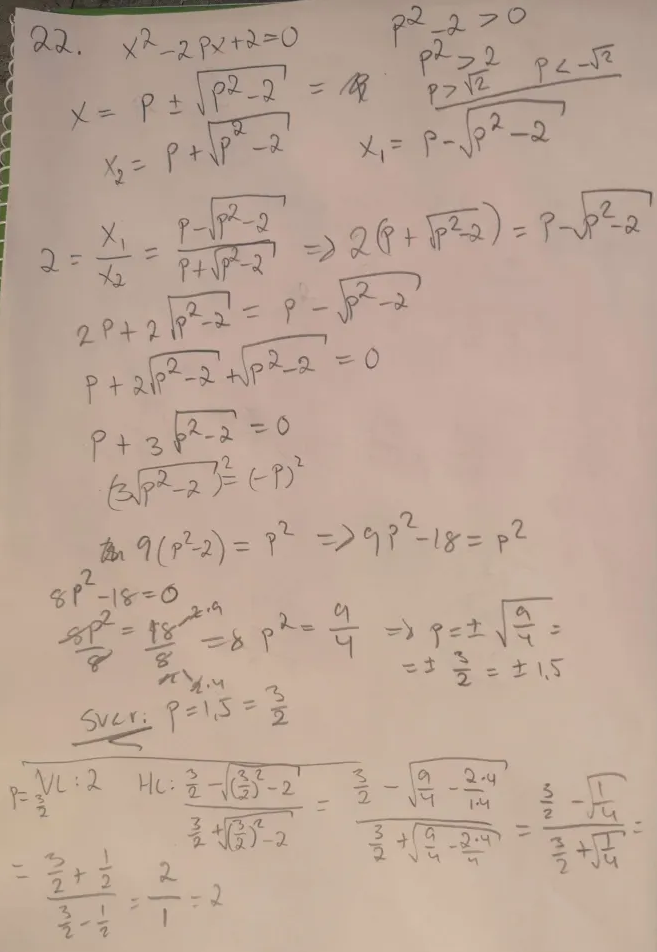 22. x² - 2px + 2 = 0
p² - 2 > 0
p² > 2
p > √2 p < -√2
x = p ± √(p² - 2) =
x₂ = p + √(p² - 2) x₁ = p - √(p² - 2)
2 = x₁/x₂ = (p - √(p² - 2))/(p + √(p² - 2)) => 2(p + √(p² - 2)) = p - √(p² - 2)
2p + 2√(p² - 2) = p - √(p² - 2)
p + 2√(p² - 2) + √(p² - 2) = 0
p + 3√(p² - 2) = 0
(3√(p² - 2))² = (-p)²
9(p² - 2) = p² => 9p² - 18 = p²
8p² - 18 = 0
8p²/8 = 18/8 => p² = 9/4 => p = ± √(9/4) =
2·9
2·4
= ± 3/2 = ± 1,5
Svar: p = 1,5 = 3/2
p = 3/2 VL: 2 HL: (3/2 - √((3/2)² - 2))/(3/2 + √((3/2)² - 2)) = (3/2 - √(9/4 - 2·4/1·4))/(3/2 + √(9/4 - 2·4/4)) = (3/2 - √(1/4))/(3/2 + √(1/4)) =
= (3/2 + 1/2)/(3/2 - 1/2) = 2/1 = 2